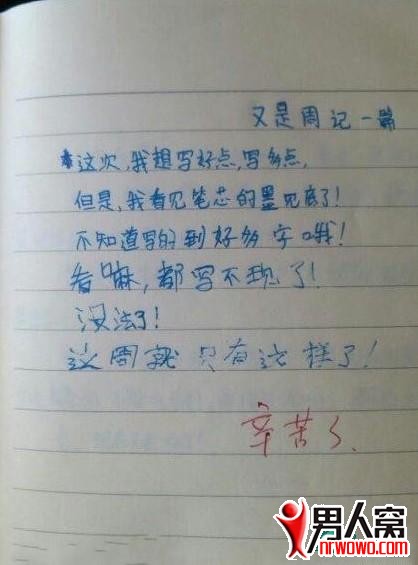 又是周记一篇
这次,我想写好点,写多点,
但是,我看见笔芯的墨见底了!
不知道写的到好多字哦!
看嘛,都写不现了!
没法了!
这周就只有这样了!
辛苦了、
男人窝
nrwowo.com